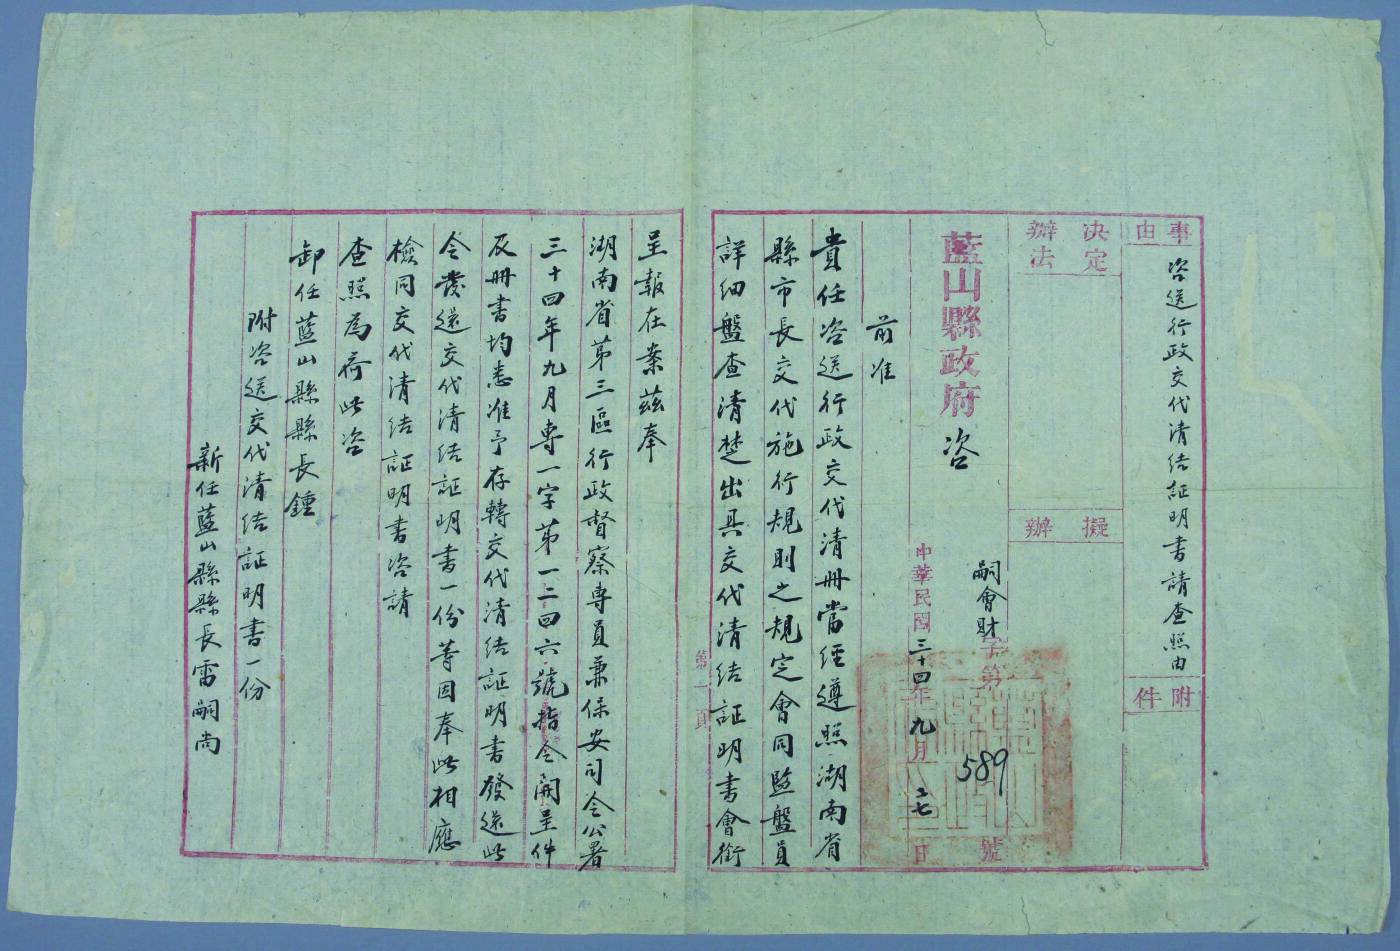 事由
咨送行政交代清结証明書請查照由
附件
决定辦法
擬辦
藍山縣政府咨
嗣會財字第589號
中華民國三十四年九月二七日
前准
貴任咨送行政交代清册當經遵照湖南省
縣市長交代施行規則之規定會同監盤員
詳细盤查清楚出具交代清结証明書會銜
第一頁
呈報在案兹奉
湖南省第三區行政督察專員兼保安司令公署
三十四年九月專一字第一二四六號指令開呈件
及册書均悉准予存轉交代清结証明書發還此
令發還交代清结証明書一份等因奉此相應
檢同交代清结証明書咨請
查照為荷此咨
卸任藍山縣縣長鍾
附咨送交代清结証明書一份
新任藍山縣縣長雷嗣尚